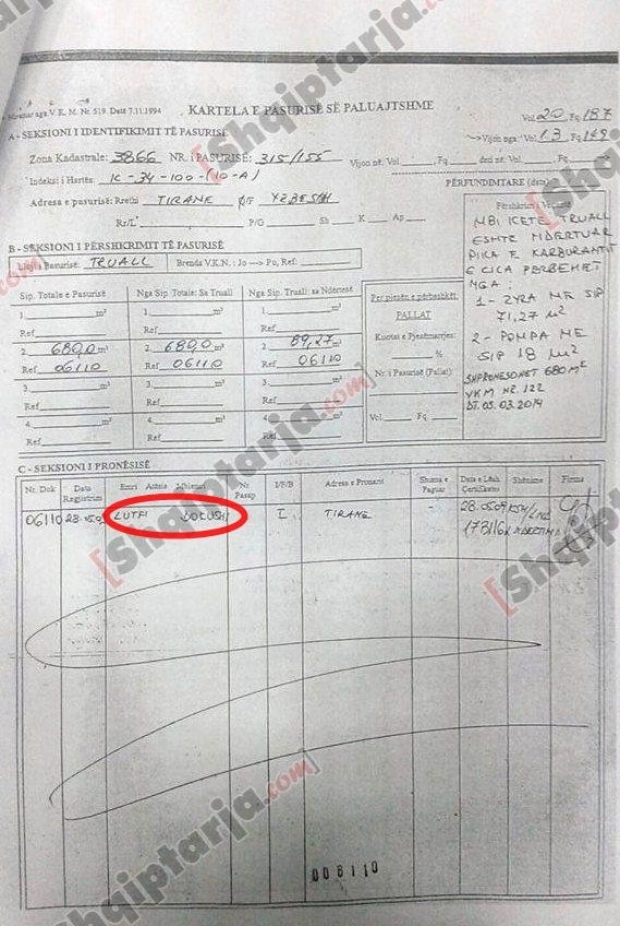 Miratuar nga V.K.M. Nr. 519. Datë 7.11.1994
KARTELA E PASURISË SË PALUAJTSHME
Vol. 20 Fq. 187
A - SEKSIONI I IDENTIFIKIMIT TË PASURISË
Vijon nga Vol. 13 Fq 149
Zona Kadastrale: 3866 NR. i PASURISË: 315/155 Vijon në Vol. Fq. deri në Vol. Fq.
Indeksi i Hartës: K-34-100-(10-A)
PËRFUNDIMTARE (data)
Adresa e pasurisë: Rrethi TIRANE YZBESHI
Rr/L P/G Sh K Ap
MBI KETE TRUALL
ESHTE NDERTUAR
PIKA E KARBURANTIT
E CILA PERBEHET
NGA:
1 - ZYRA ME SIP
71,27 M2
2 - POMPA ME
SIP 18 M2
SHPRONESOHET 680 M2
VKM NR. 122
DT. 05.03.2014
B - SEKSIONI I PËRSHKRIMIT TË PASURISË
Lloji i Pasurisë: TRUALL Brenda V.K.N.: Jo —> Po, Ref:
Sip. Totale e Pasurisë Nga Sip. Totale: Sa Truall Nga Sip. Truall: sa Ndërtesë
1. m² 1. m² 1. m²
Ref Ref Ref
2. 680,0 m² 2. 680,0 m² 2. 89,27 m²
Ref 06110 Ref 06110 Ref 06110
3. m² 3. m² 3. m²
Ref Ref Ref
4. m² 4. m² 4. m²
Ref Ref Ref
Për pjesën e përbashkët
PALLAT
Kuotat e Pjesëmarrjes:
%
Nr. i Pasurisë (Pallat)
Vol. Fq.
C - SEKSIONI I PRONËSISË
Nr. Dok Data Regjistrim Emri Atësia Mbiemri Nr. Pasap I/F/B Adresa e Pronarit Shuma e Paguar Data e Lësh. Çertifikatës Shënime Firma
06110 LUTFI I TIRANE - 28.05.09
006110
[Shqiptarja.com]
[Shqiptarja.com]
[Shqiptarja.com]
[Shqiptarja.com]